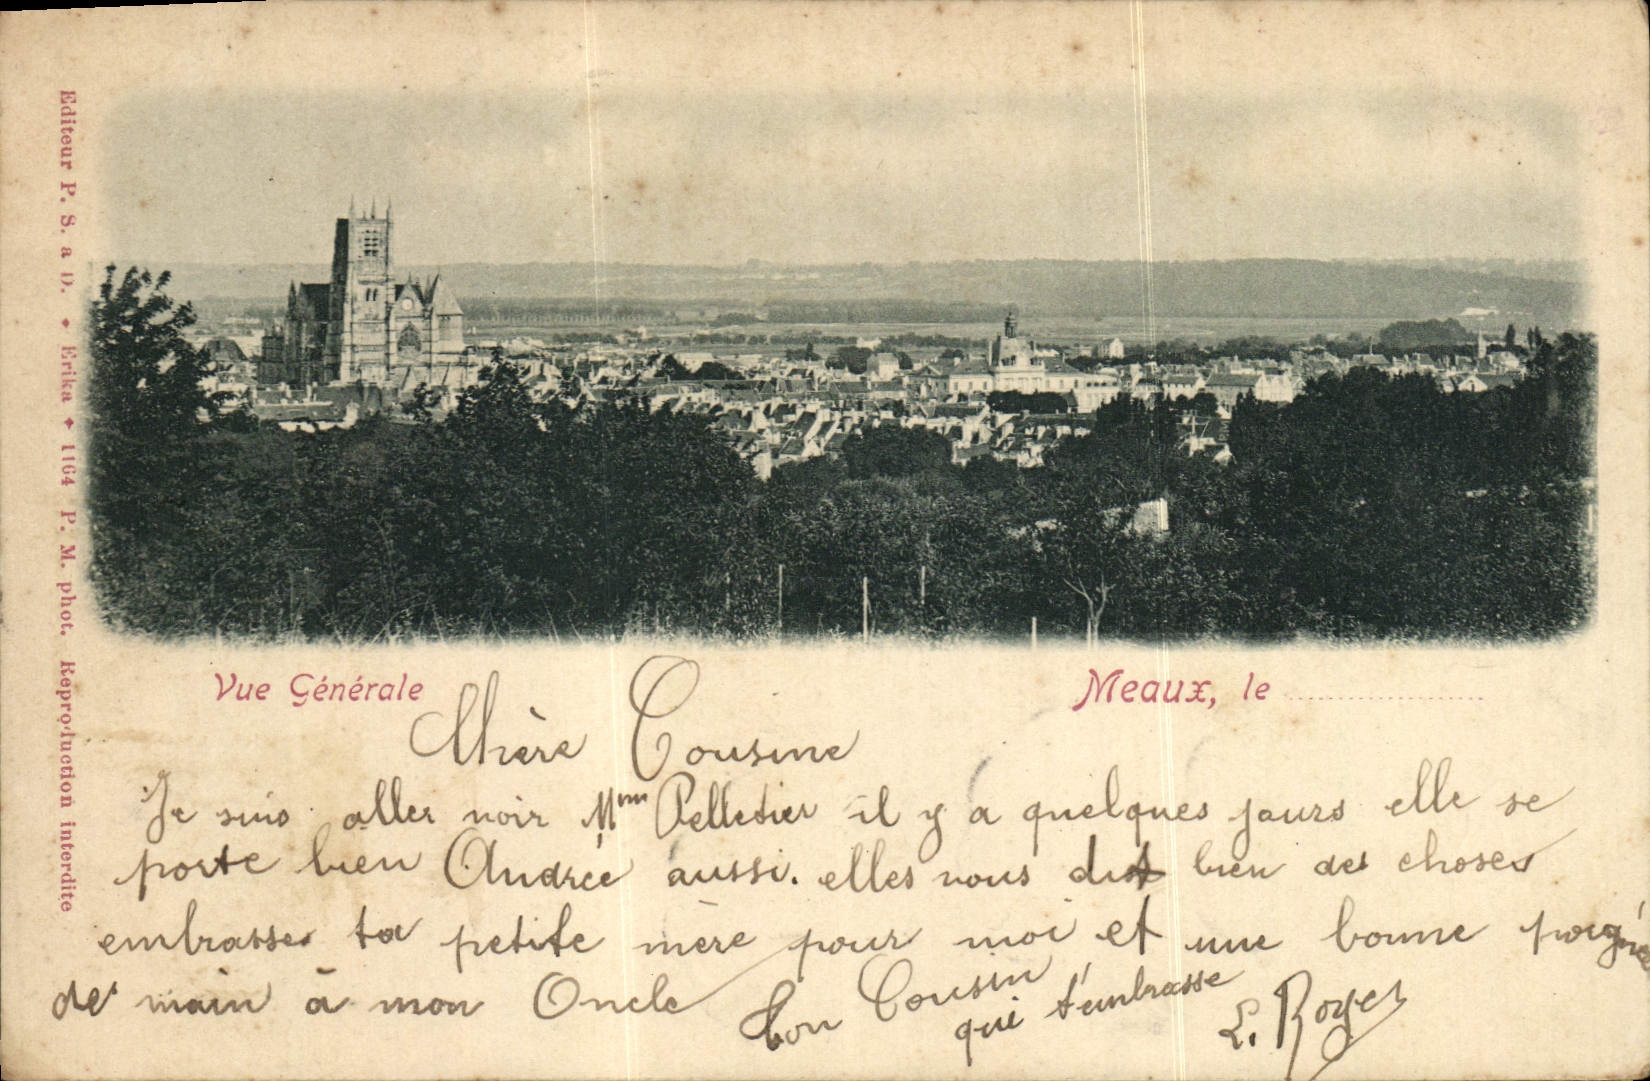 Editeur P. S. a D. ♦ Erika ♦ 1164 P. M. phot. Reproduction interdite
Vue Générale
Meaux, le
Chère Cousine
Je suis aller voir Mme Pelletier il y a quelques jours elle se
porte bien Andrée aussi. elles vous dit bien des choses
embrasses ta petite mère pour moi et une bonne poignée
de main à mon Oncle
Ton Cousin
qui t'embrasse
L. Royer